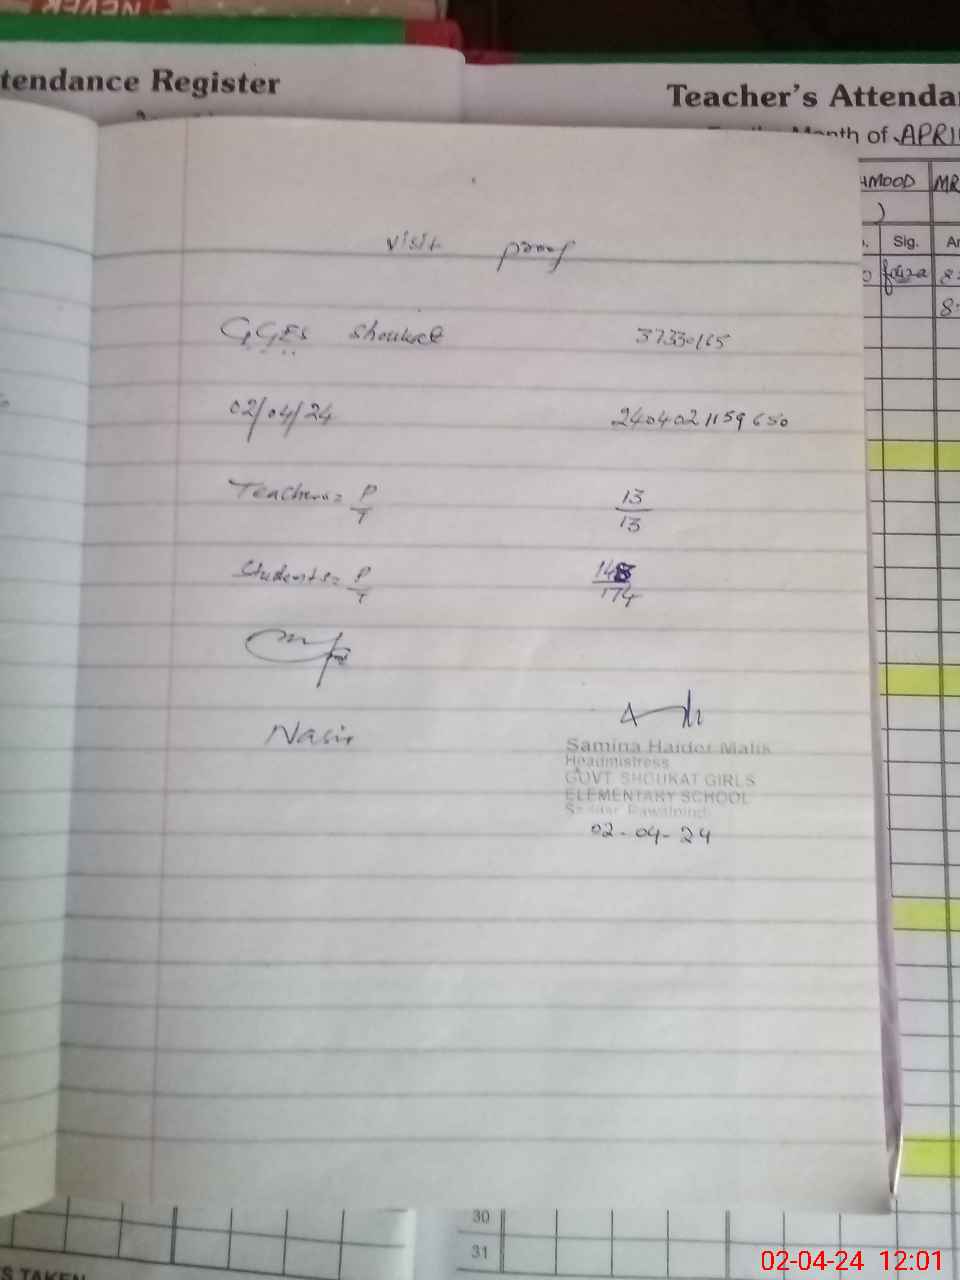 NEVER
ttendance Register
Teacher's Attenda
Month of APRI
HMOOD MR
)
Sig.
faiza 8:
8:
visit proof
GGES Shoukat 37330165
02/04/24 2404021159650
Teachers = P/T 13/13
Students = P/T 148/174
Nasir
Samina Haider Malik
Headmistress
GOVT SHOUKAT GIRLS
ELEMENTARY SCHOOL
Saddar Rawalpindi
02-04-24
30
31
S TAKEN
02-04-24 12:01